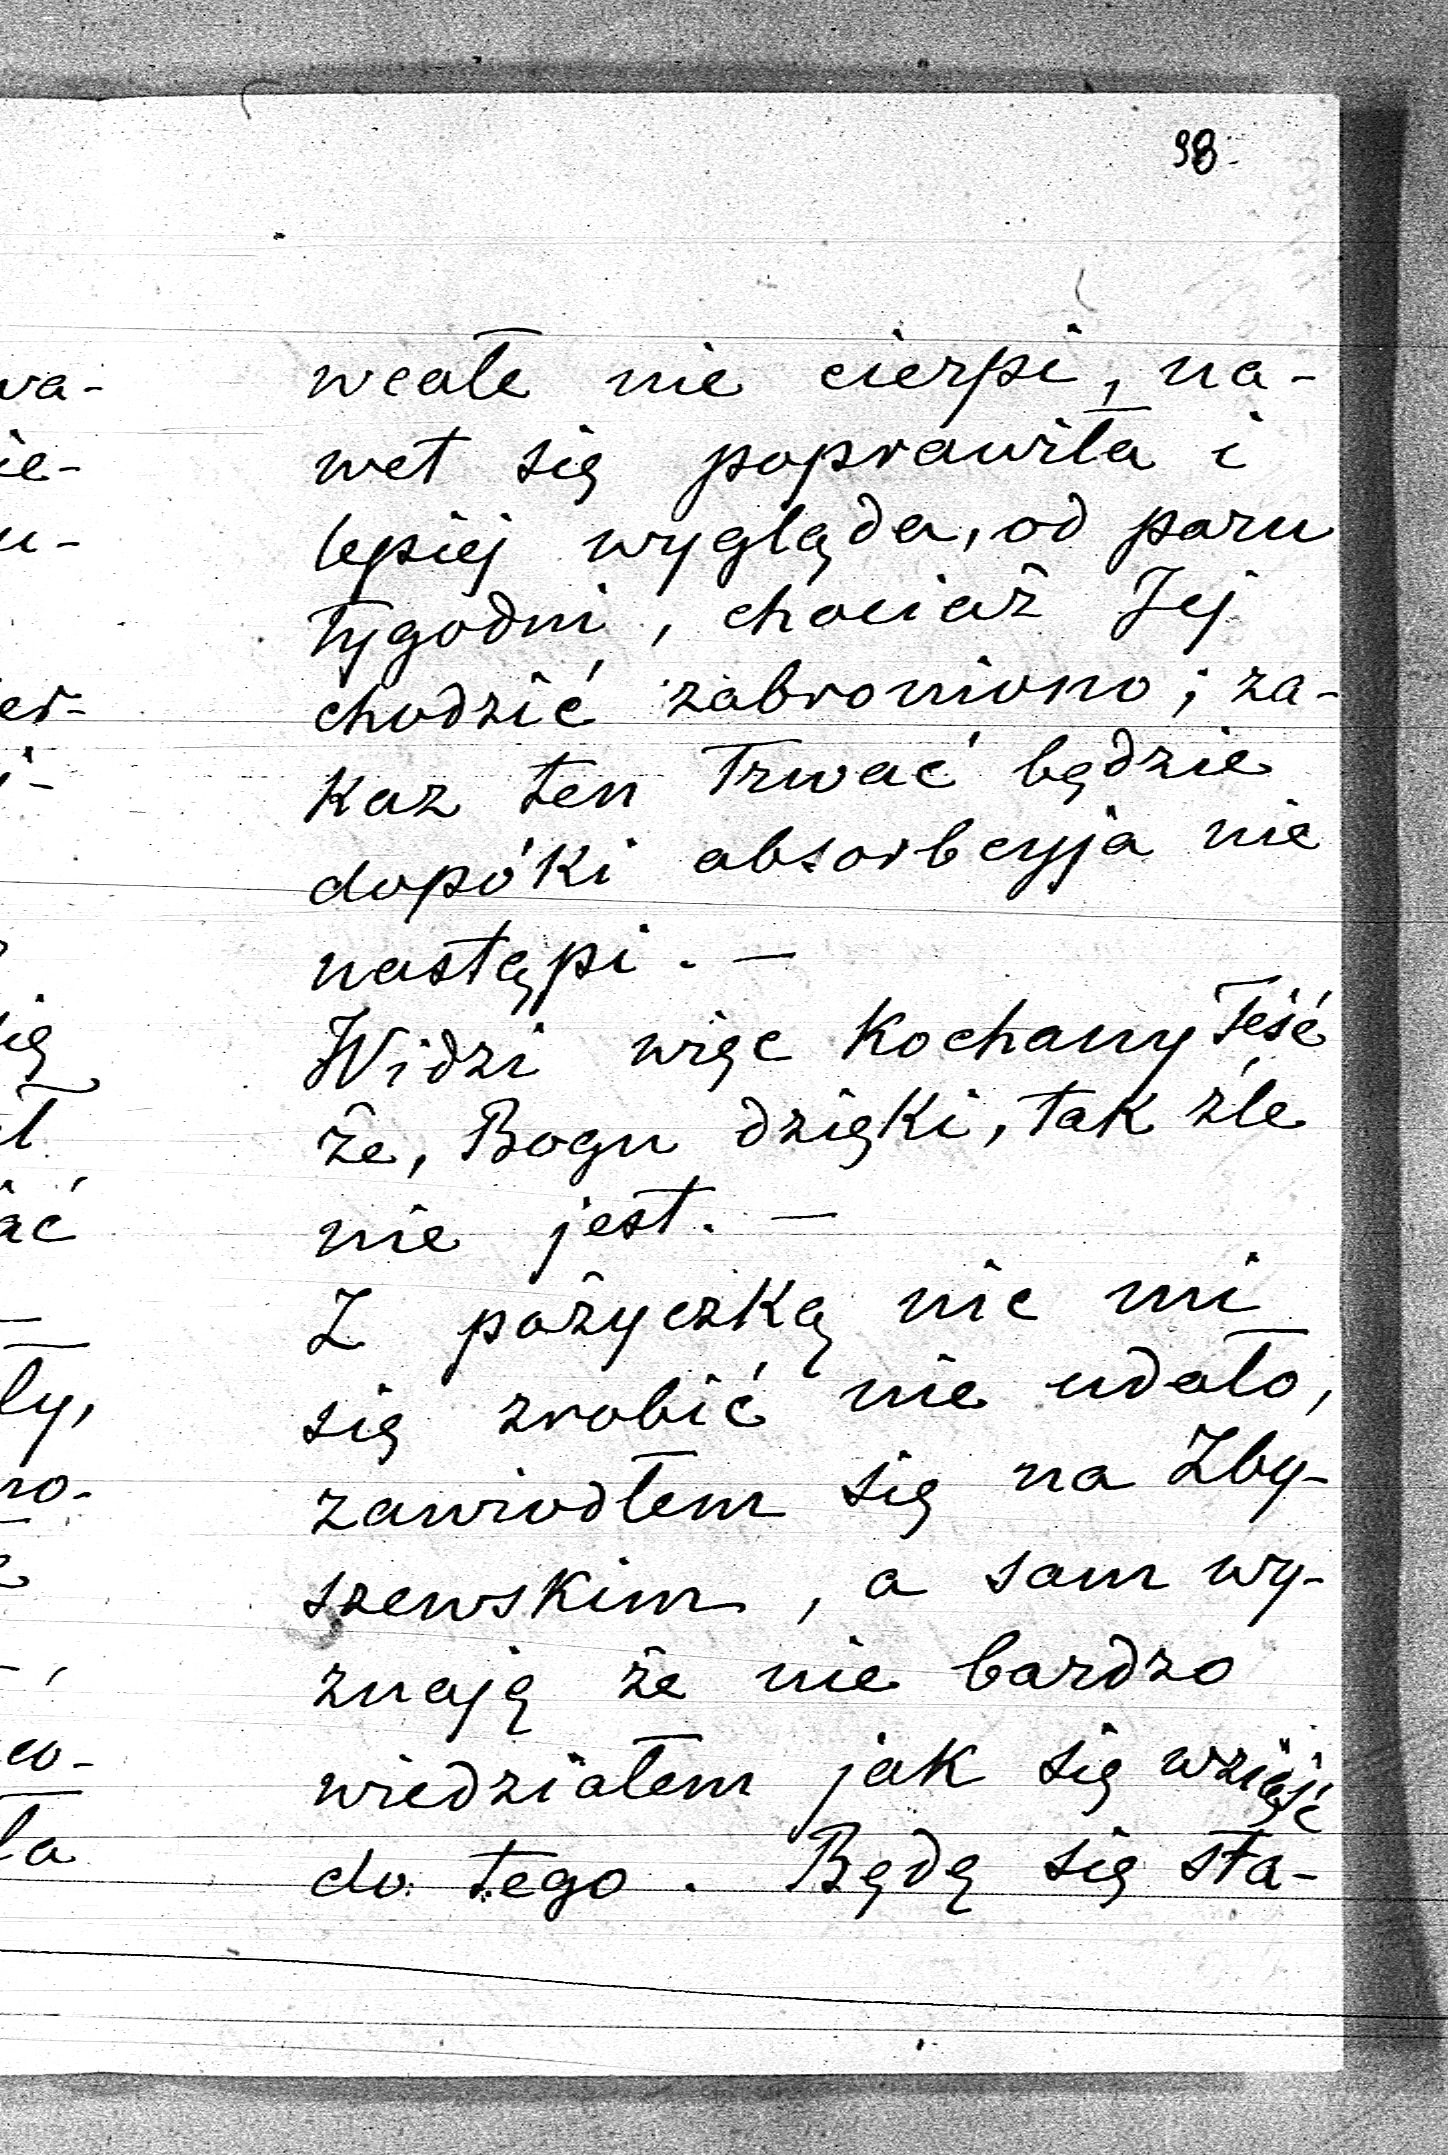 98.
wcale nie cierpi, na-
wet się poprawiła i
lepiej wygląda, od paru
tygodni, chociaż Jej
chodzić zabroniono; za-
kaz ten trwać będzie
dopóki absorbcyja nie
nastąpi. —
Widzi więc Kochany Teść
że, Bogu dzięki, tak źle
nie jest. —
Z pożyczką nic mi
się zrobić nie udało,
zawiodłem się na Zby-
szewskim, a sam wy-
znaję że nie bardzo
wiedziałem jak się wziąść
do tego. Będę się sta-